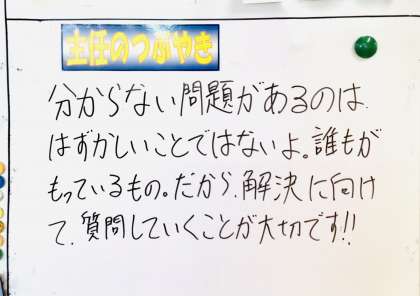 主任のつぶやき
分からない問題があるのは
はずかしいことではないよ。誰もが
もっているもの。だから、解決に向け
て、質問していくことが大切です!!